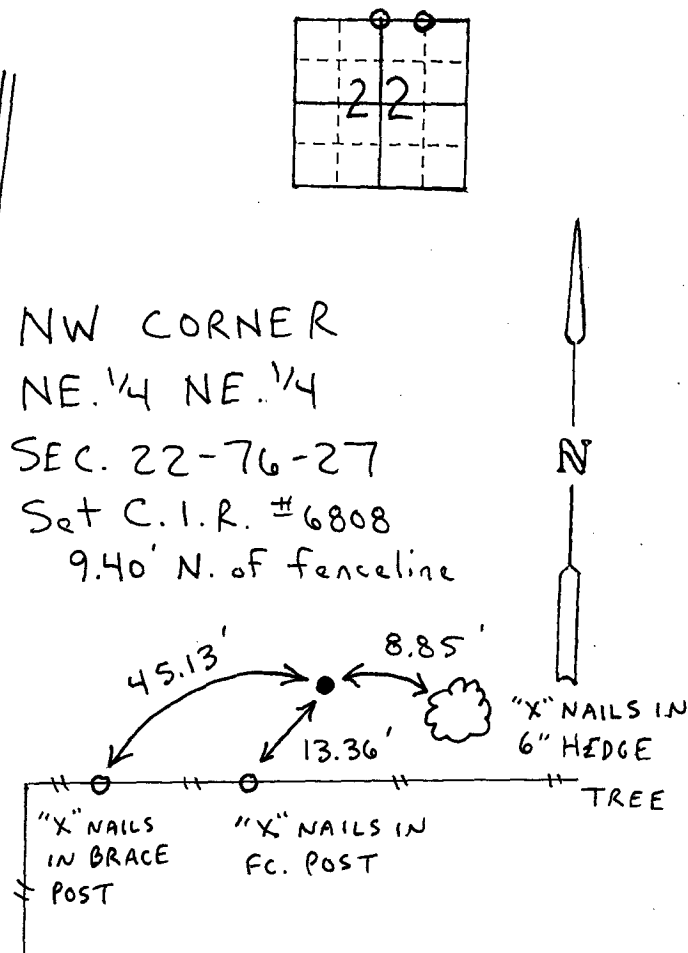 22
NW CORNER
NE. 1/4 NE. 1/4
SEC. 22-76-27
Set C.I.R. #6808
9.40' N. of fenceline
N
45.13'
8.85'
13.36'
"X" NAILS IN
6" HEDGE
TREE
"X" NAILS
IN BRACE
POST
"X" NAILS IN
FC. POST